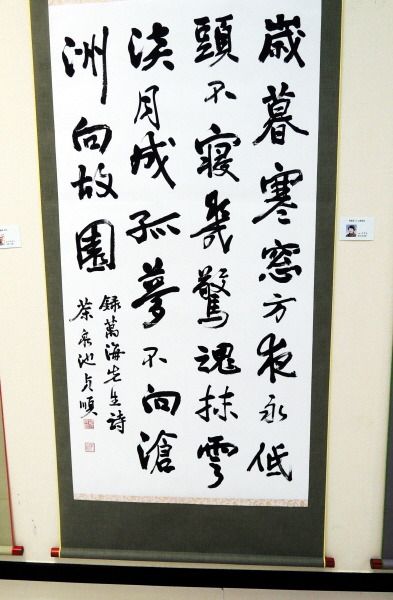 歲暮寒窓方夜永低
頭不寢幾驚魂抹雲
淡月成孤夢不向滄
洲向故園
錄萬海先生詩
茶泉池貞順